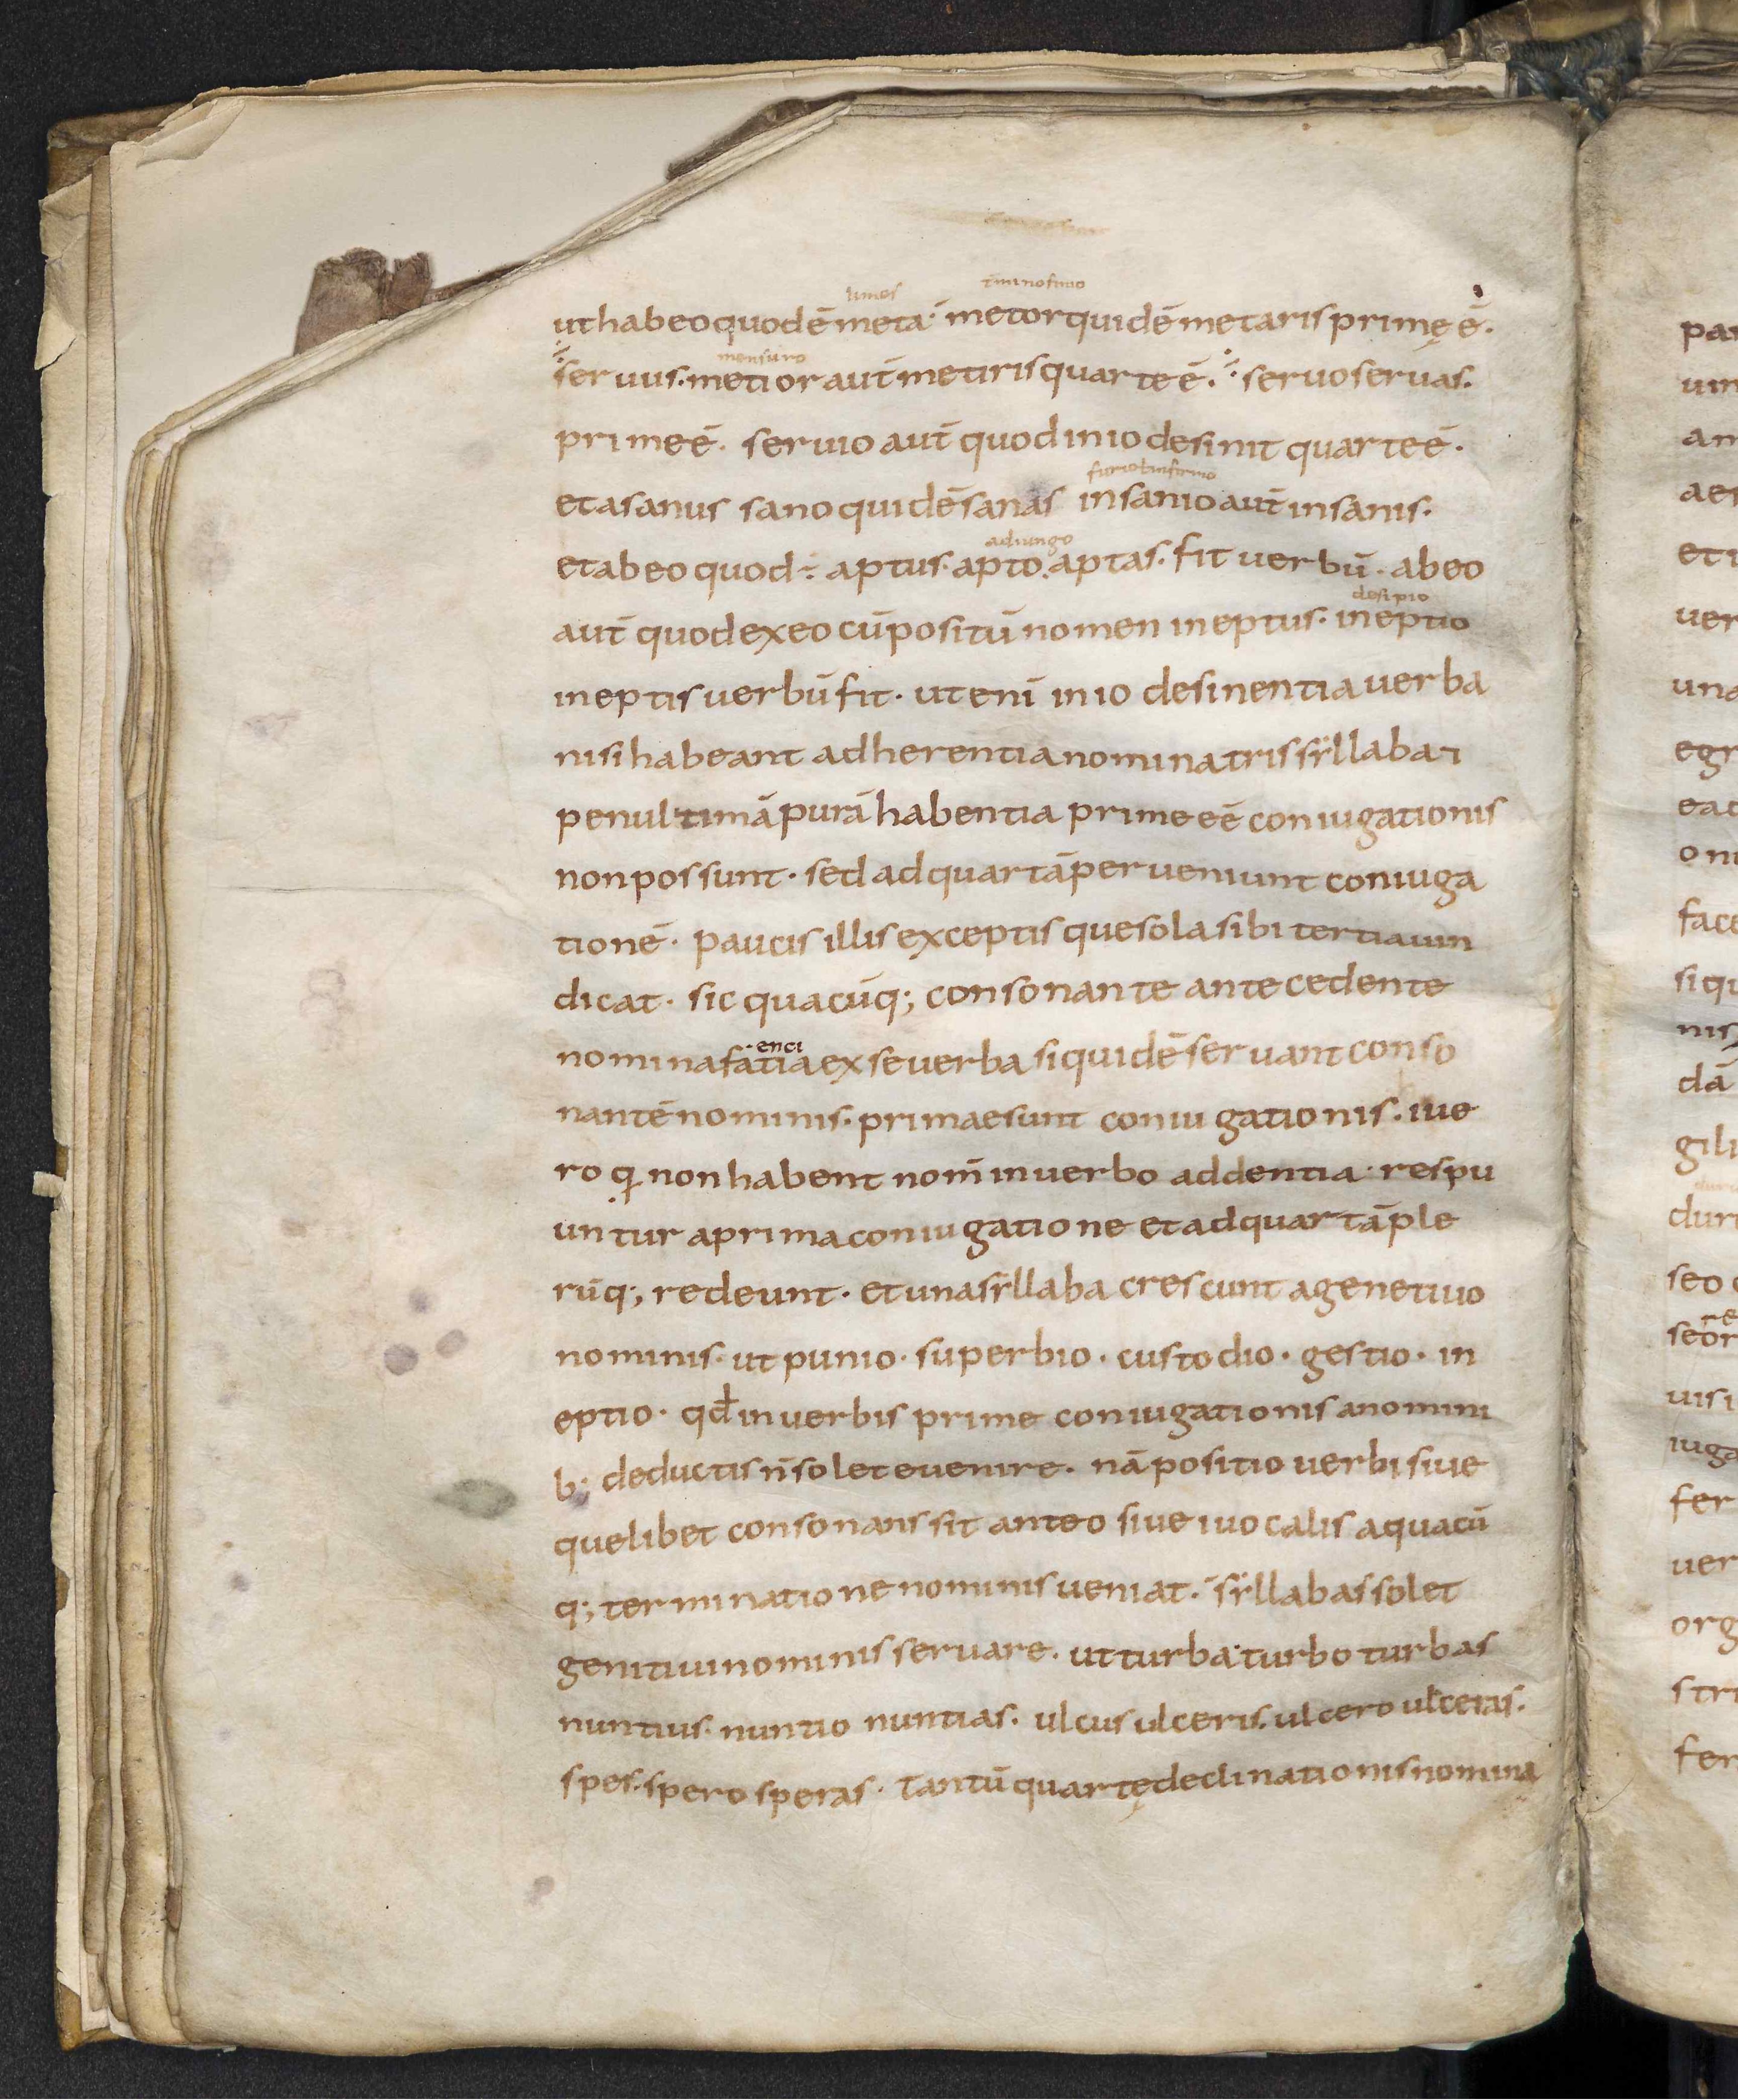 limes t̄minos fino
ut habeo quod ē meta· metor quidē metaris primę ē·
mensuro
seruus· metior aut̄ metiris quarte ē· seruo seruas·
prime ē· seruio aut̄ quod in io desinit quarte ē·
furio
et a sanus sano quidē sanas insanio aut̄ insanis·
adiungo
et ab eo quod ÷ aptus· apto· aptas· fit uerbū· ab eo
desipio
aut̄ quod ex eo cūpositū nomen ineptus· ineptio
ineptis uerbū fit· ut enī in io desinentia uerba
nisi habeant adherentia nomina tris syllaba i
penultimā purā habentia prime eē coniugationis
non possunt· sed ad quartā perueniunt coniuga
tionē· paucis illis exceptis que sola sibi tertia uin
dicat· sic quacūq; consonante antecedente
enci
nomina fatia ex se uerba siquidē seruant conso
nantē nominis· primae sunt coniugationis· i ue
ro q non habent nom̄ in uerbo addentia· respu
untur a prima coniugatione et ad quartā ple
rūq; redeunt· et una syllaba crescunt a genetiuo
nominis· ut punio· superbio· custodio· gestio· in
eptio· qđ in uerbis prime coniugationis a nomini
b; deductis n̄ solet euenire· nā positio uerbi siue
quelibet consonans sit ante o siue i uocalis a quacū
q; terminatione nominis ueniat· syllabas solet
genitiui nominis seruare· ut turba· turbo turbas
nuntius· nuntio nuntias· ulcus ulceris· ulcero ulceras·
spes· spero speras· Tantū quartę declinationis nomina